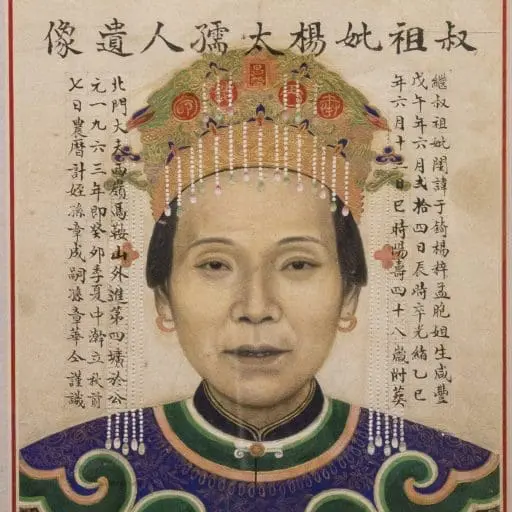 叔祖妣楊太孺人遺像
繼叔祖妣閨諱于錡楊梓孟胞姐生咸豐
戊午年六月弍拾四日辰時卒光緒乙巳
年六月十二日巳時陽壽四十八歲附葬
北門大夫西嶺馬鞍山外進第四壙於公
元一九六三年即癸卯季夏中澣立秋前
七日農曆計姪孫章成嗣孫章華仝謹識